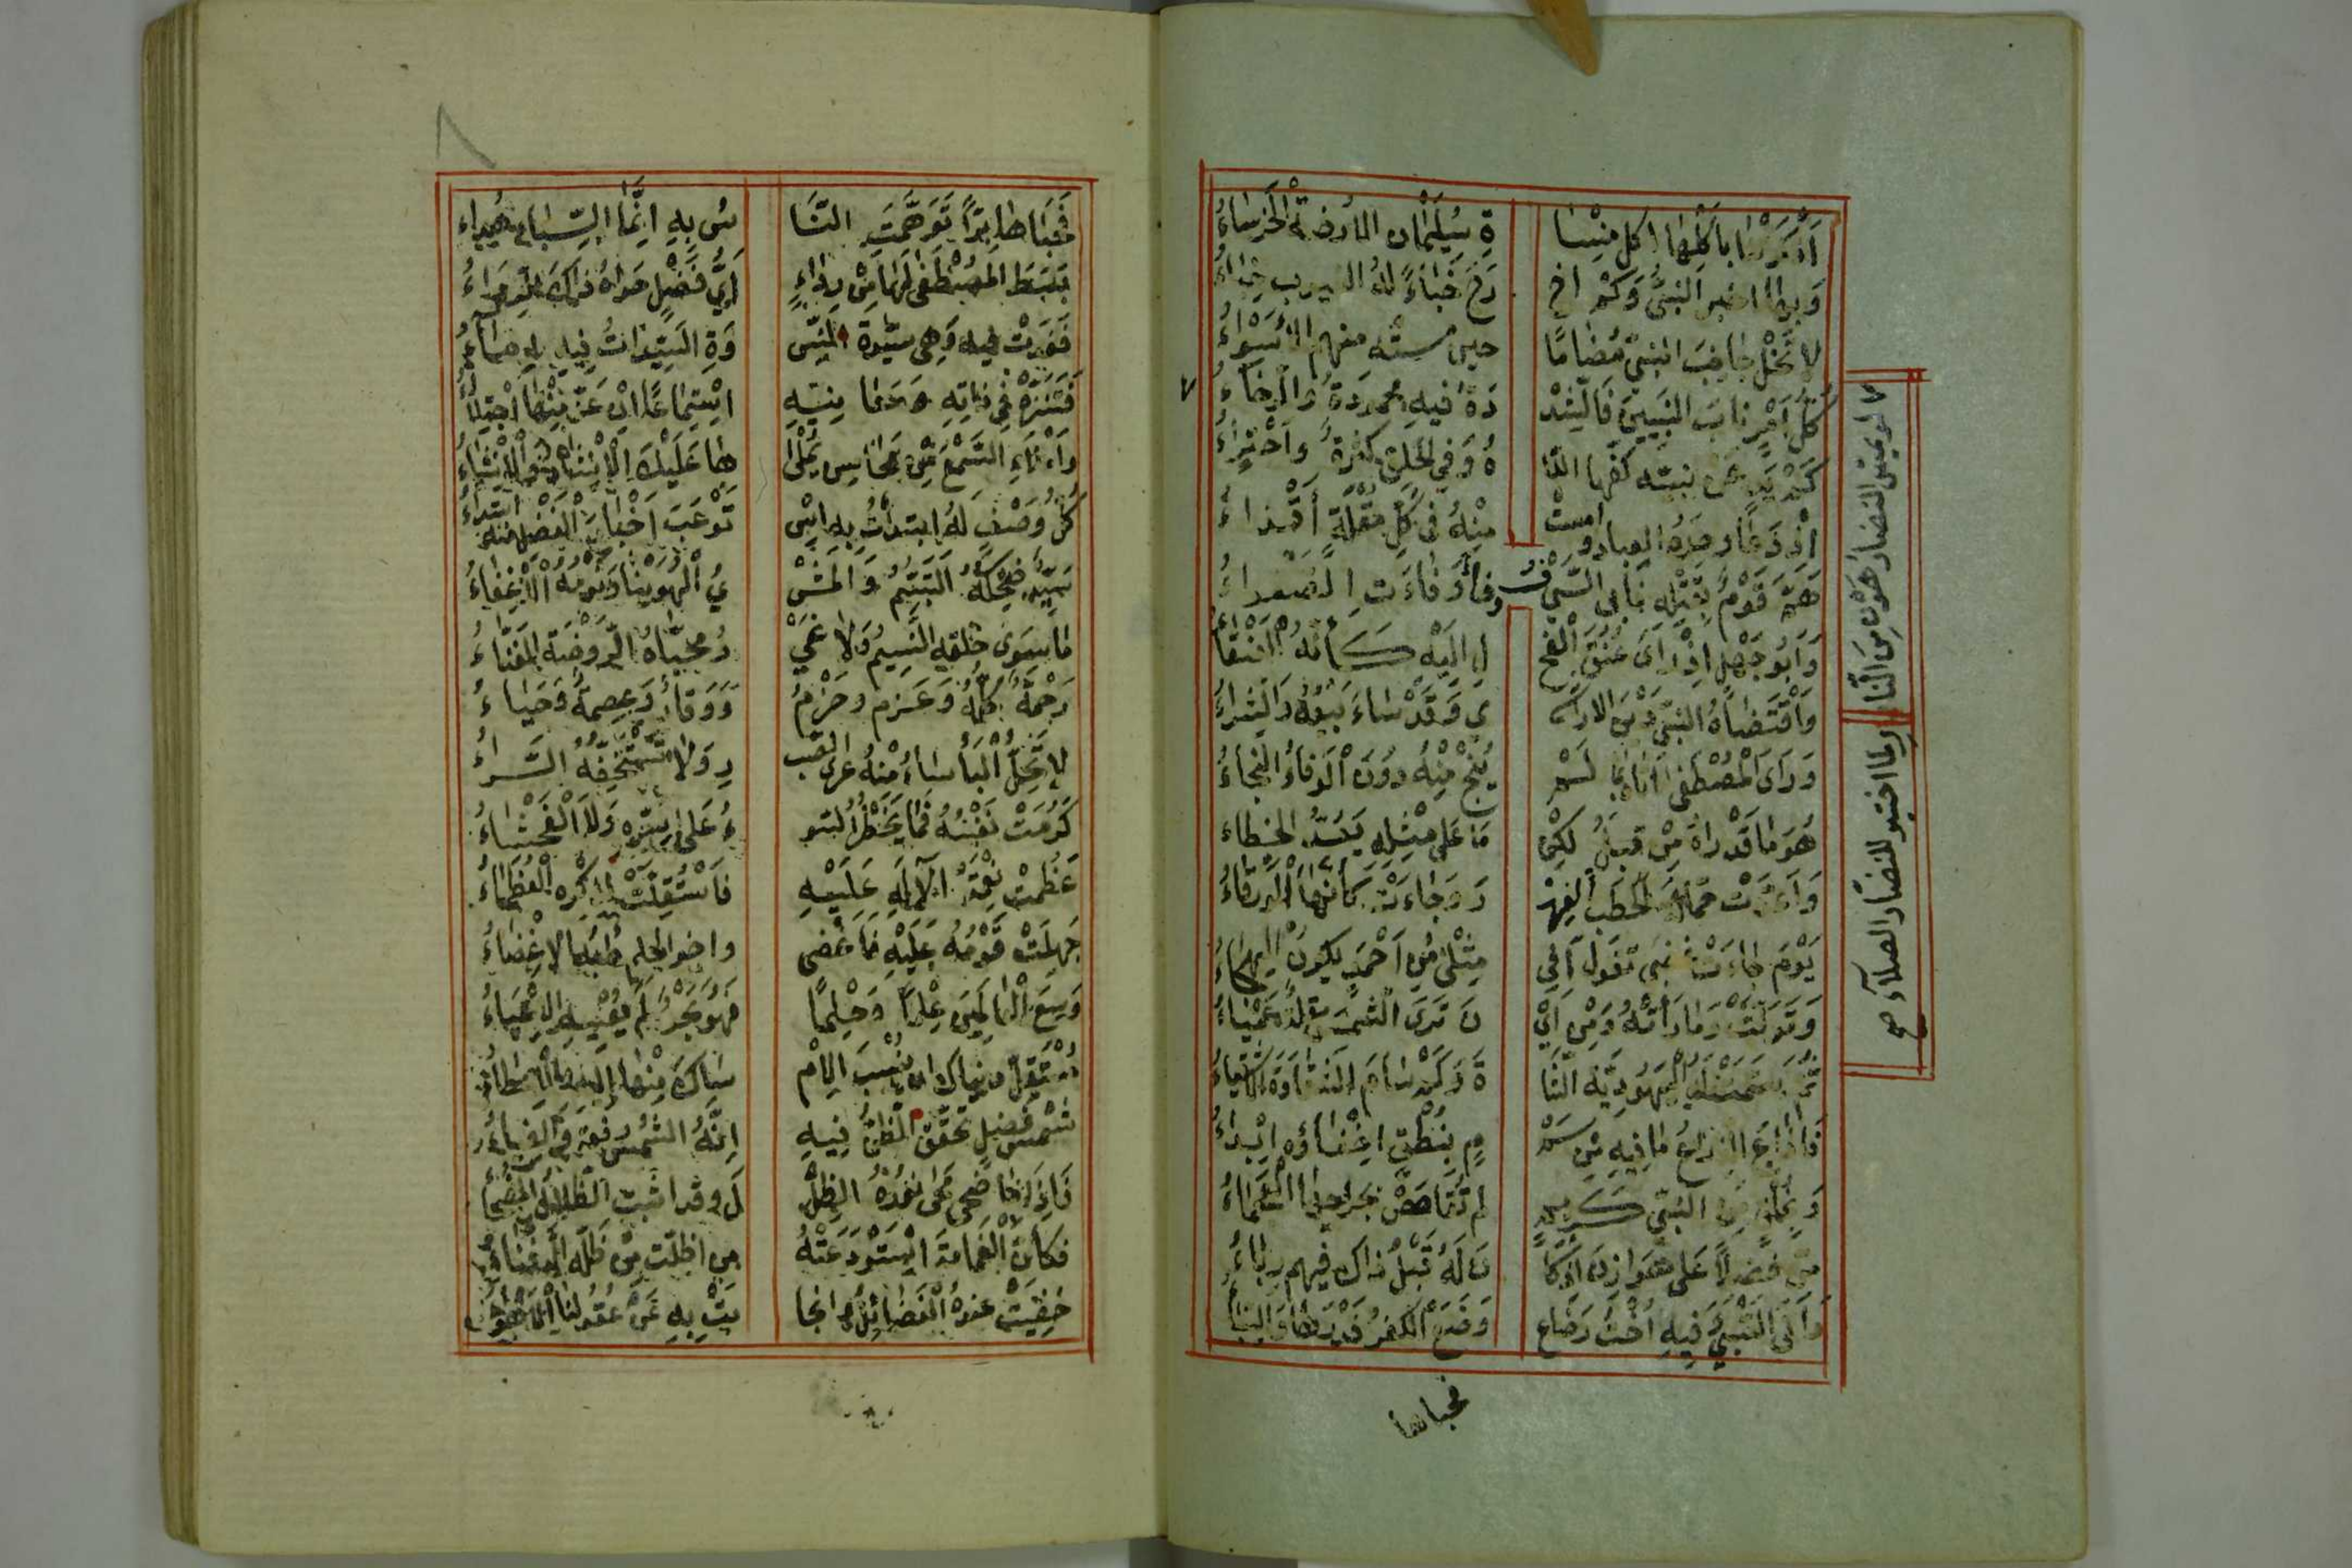 اذكرتنا باكلها اكل منسا ة سليمان الارضة الخرساء
وبها اخبر النبي وكم اخ رج خباءً له الغيوب خباء
لا تخل جانب النبي مضاما حين مسته منهم الأسواء
كل امر ناب النبيين فالشد دة فيه محمودة والرخاء ٧
٧ لو يمس النضار هون من النا
ر لما اختير للنضار الصلآء صح
كم يد عن نبيه كفها اللا ه وفي الخلق كثرة واجتراء
اذ دعا وحده العباد وامست منه في كل مقلة أقذاء
هم قوم بقتله فابى السيف وفاء وفاءت الصفواء
وابو جهل اذ راى عنق الفح ل اليه كأنه العنقاء
واقتضاه النبي دين الاراش ي وقد ساء بيعه والشراء
وراى المصطفى اتاه بما لم ينج منه دون الوفاء النجاء
هو ما قد راه من قبل لكن ما على مثله يعد الخطاء
واعدت حمالة الحطب الفهر وجاءت كأنها الورقاء
يوم جاءت غضبى تقول افي مثلي من احمد يكون الهجاء
وتولت وما رأته ومن اي ن ترى الشمس مقلة عمياء
ثم سمت له اليهودية الشا ة وكم سام الشقاوة الاشقياء
فاذاع الذراع ما فيه من سم م بنطق اخفاؤه ابداء
وبخلق من النبي كريم لم تقاصص بجرحها العجماء
من فضلاً على هوازن اذ كا ن له قبل ذاك فيهم رباء
واتى السبي فيه اخت رضاع وضع الكفر قدرها والسبا
فحباها
٨
فحباها برّاً توهمت النا س به انما السباء هداء
بسط المصطفى لها من رداء اي فضل حواه ذاك الرداء
فغدت فيه وهي سيدة النس وة السيدات فيه اماء
فتنزه في ذاته ومعانيه استماعا ان عز منها اجتلاء
واملاء السمع من محاسن يملي ها عليك الانشاد والانشاء
كل وصف له ابتدات به اس توعب اخبار الفضل منه ابتداء
سيد ضحكه التبسم والمش ي الهوينا ونومه الاغفاء
ما سوى خلقه النسيم ولا غي ر محياه الروضة الغناء
رحمة كله وعزم وحزم ووقار وعصمة وحياء
لا تحل البأساء منه عرى الصب ر ولا تستخفه السراء
كرمت نفسه فما يخطر السو ء على سره ولا الفحشاء
عظمت نعمة الاله عليه فاستقلت لذكره العظماء
جهلت قومه عليه فاغضى واخو الحلم دأبه الاغضاء
وسع العالمين علماً وحلما فهو بحر لم تعيه الاعياء
مستقل دنياك ان ينسب الام ساك منها اليه والاعطاء
شمس فضل تحقق الظن فيه انه الشمس رفعة والضياء
فاذا ما ضحى محى نوره الظل ل وقد اثبت الظلال الضحاء
فكأن الغمامة استودعته من اظلت من ظله الدففاء
خفيت عنده الفضائل وانجا بت به عن عقولنا الاهواء